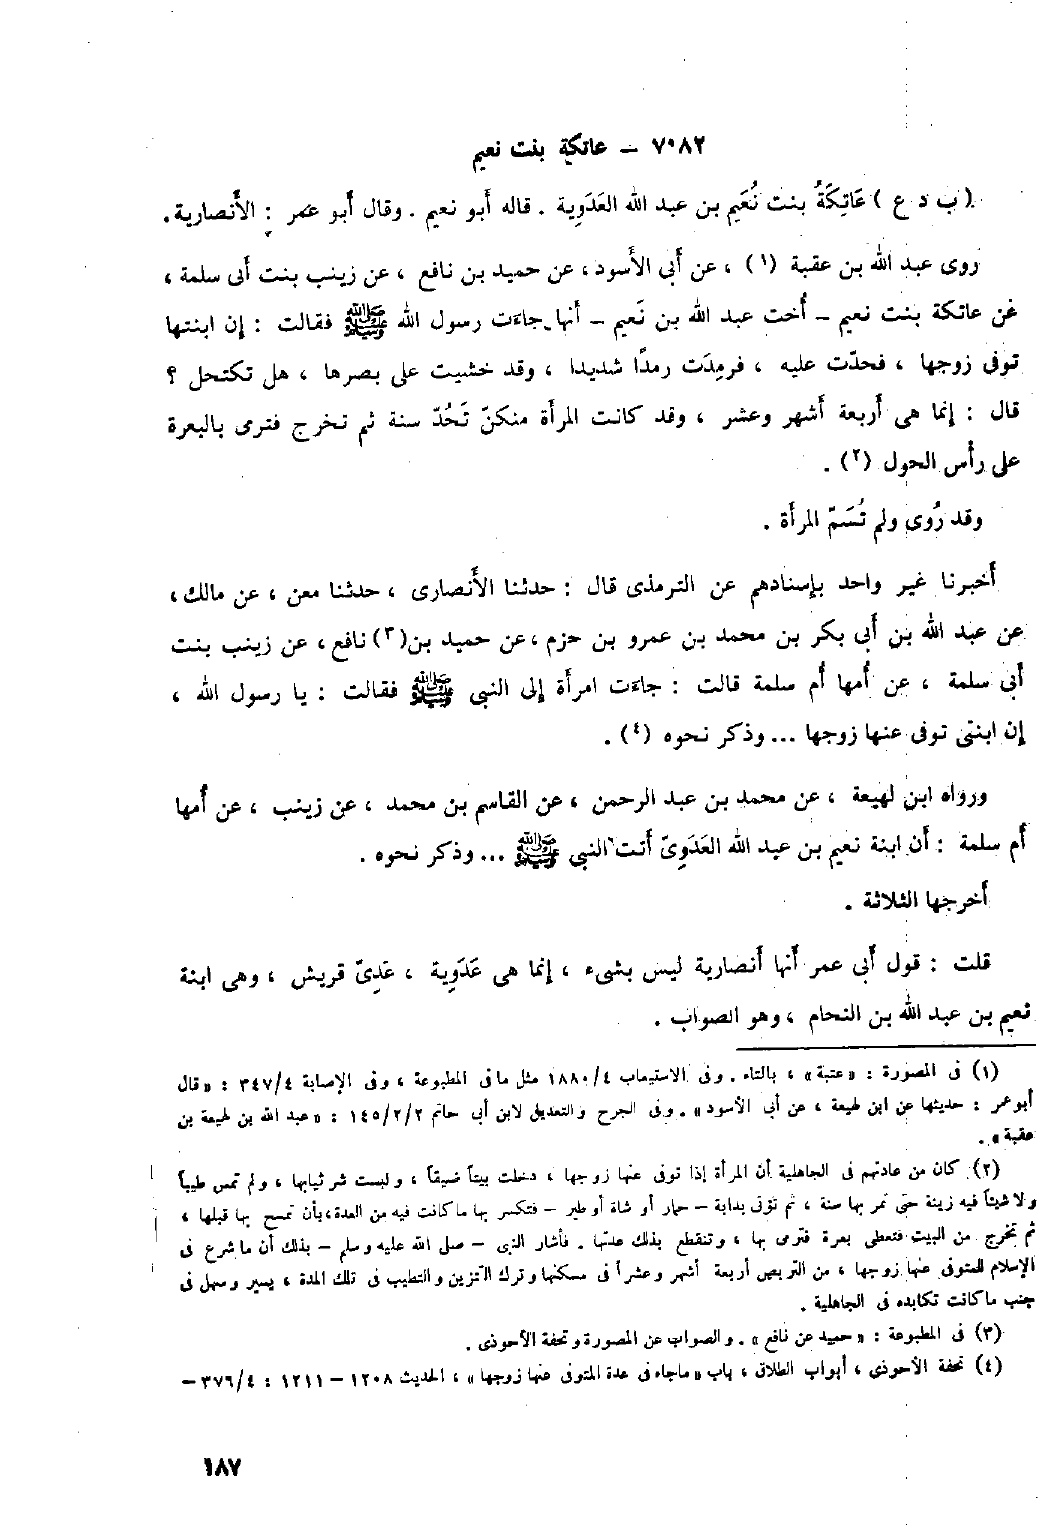 ٧٠٨٢ – عاتكة بنت نعيم
(ب د ع) عَاتِكَةُ بنت نُعَيم بن عبد الله العَدَوِية . قاله أبو نعيم . وقال أبو عمر : الأنصارية .
روى عبد الله بن عقبة (١) ، عن أبي الأسود ، عن حميد بن نافع ، عن زينب بنت أبى سلمة ،
عن عاتكة بنت نعيم – أُخت عبد الله بن نَعيم – أنها جاءَت رسول الله ﷺ فقالت : إن ابنتها
توفى زوجها ، فحدّت عليه ، فرمِدَت رمدًا شديدا ، وقد خشيت على بصرها ، هل تكتحل ؟
قال : إنما هى أربعة أشهر وعشر ، وقد كانت المرأة منكنّ تَحُدّ سنة ثم تخرج فترى بالبعرة
على رأس الحول (٢) .
وقد رُوى ولم تُسَمّ المرأة .
أخبرنا غير واحد بإسنادهم عن الترمذى قال : حدثنا الأنصارى ، حدثنا معن ، عن مالك ،
عن عبد الله بن أبى بكر بن محمد بن عمرو بن حزم ، عن حميد بن(٣) نافع ، عن زينب بنت
أبى سلمة ، عن أمها أُم سلمة قالت : جاءَت امرأة إلى النبى ﷺ فقالت : يا رسول الله ،
إن ابنتى توفى عنها زوجها ... وذكر نحوه (٤) .
ورواه ابن لهيعة ، عن محمد بن عبد الرحمن ، عن القاسم بن محمد ، عن زينب ، عن أُمها
أم سلمة : أن ابنة نعيم بن عبد الله العَدَوِىّ أتت النبي ﷺ ... وذكر نحوه .
أخرجها الثلاثة .
قلت : قول أبى عمر أنها أنصارية ليس بشىء ، إنما هى عَدَوِية ، عَدِىّ قريش ، وهى ابنة
نعيم بن عبد الله بن النحام ، وهو الصواب .
(١) فى المصورة : « عتبة » ، بالتاء . وفى الاستيعاب ١٨٨٠/٤ مثل ما فى المطبوعة ، وفى الإصابة ٣٤٧/٤ : « قال
أبو عمر : حديثها عن ابن لهيعة ، عن أبى الأسود » . وفى الجرح والتعديل لابن أبى حاتم ١٤٥/٢/٢ : « عبد الله بن لهيعة بن
عقبة » .
(٢) كان من عادتهم فى الجاهلية أن المرأة إذا توفى عنها زوجها ، دخلت بيتاً ضيقاً ، ولبست شر ثيابها ، ولم تمس طيباً
ولا شيئاً فيه زينة حتى تمر بها سنة ، ثم تؤتى بدابة – حمار أو شاة أو طير – فتكسر بها ما كانت فيه من العدة، بأن تمسح بها قبلها ،
ثم تخرج من البيت فتعطى بعرة فترمى بها ، وتنقطع بذلك عدتها . فأشار النبى – صلى الله عليه وسلم – بذلك أن ما شرع فى
الإسلام للمتوفى عنها زوجها ، من التربص أربعة أشهر وعشراً فى مسكنها وترك التزين والتطيب فى تلك المدة ، يسير وسهل فى
جنب ما كانت تكابده فى الجاهلية .
(٣) فى المطبوعة : « حميد عن نافع » . والصواب عن المصورة وتحفة الأحوذى .
(٤) تحفة الأحوذى ، أبواب الطلاق ، باب « ما جاء فى عدة المتوفى عنها زوجها » ، الحديث ١٢٠٨ – ١٢١١ : ٣٧٦/٤ –
١٨٧